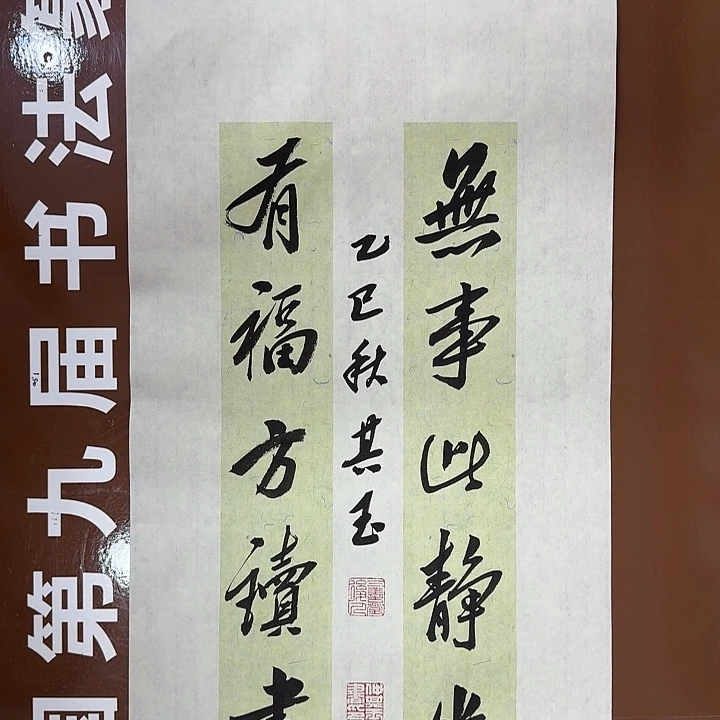 無事此静坐
有福方讀書
乙巳秋其玉
国第九届书法篆